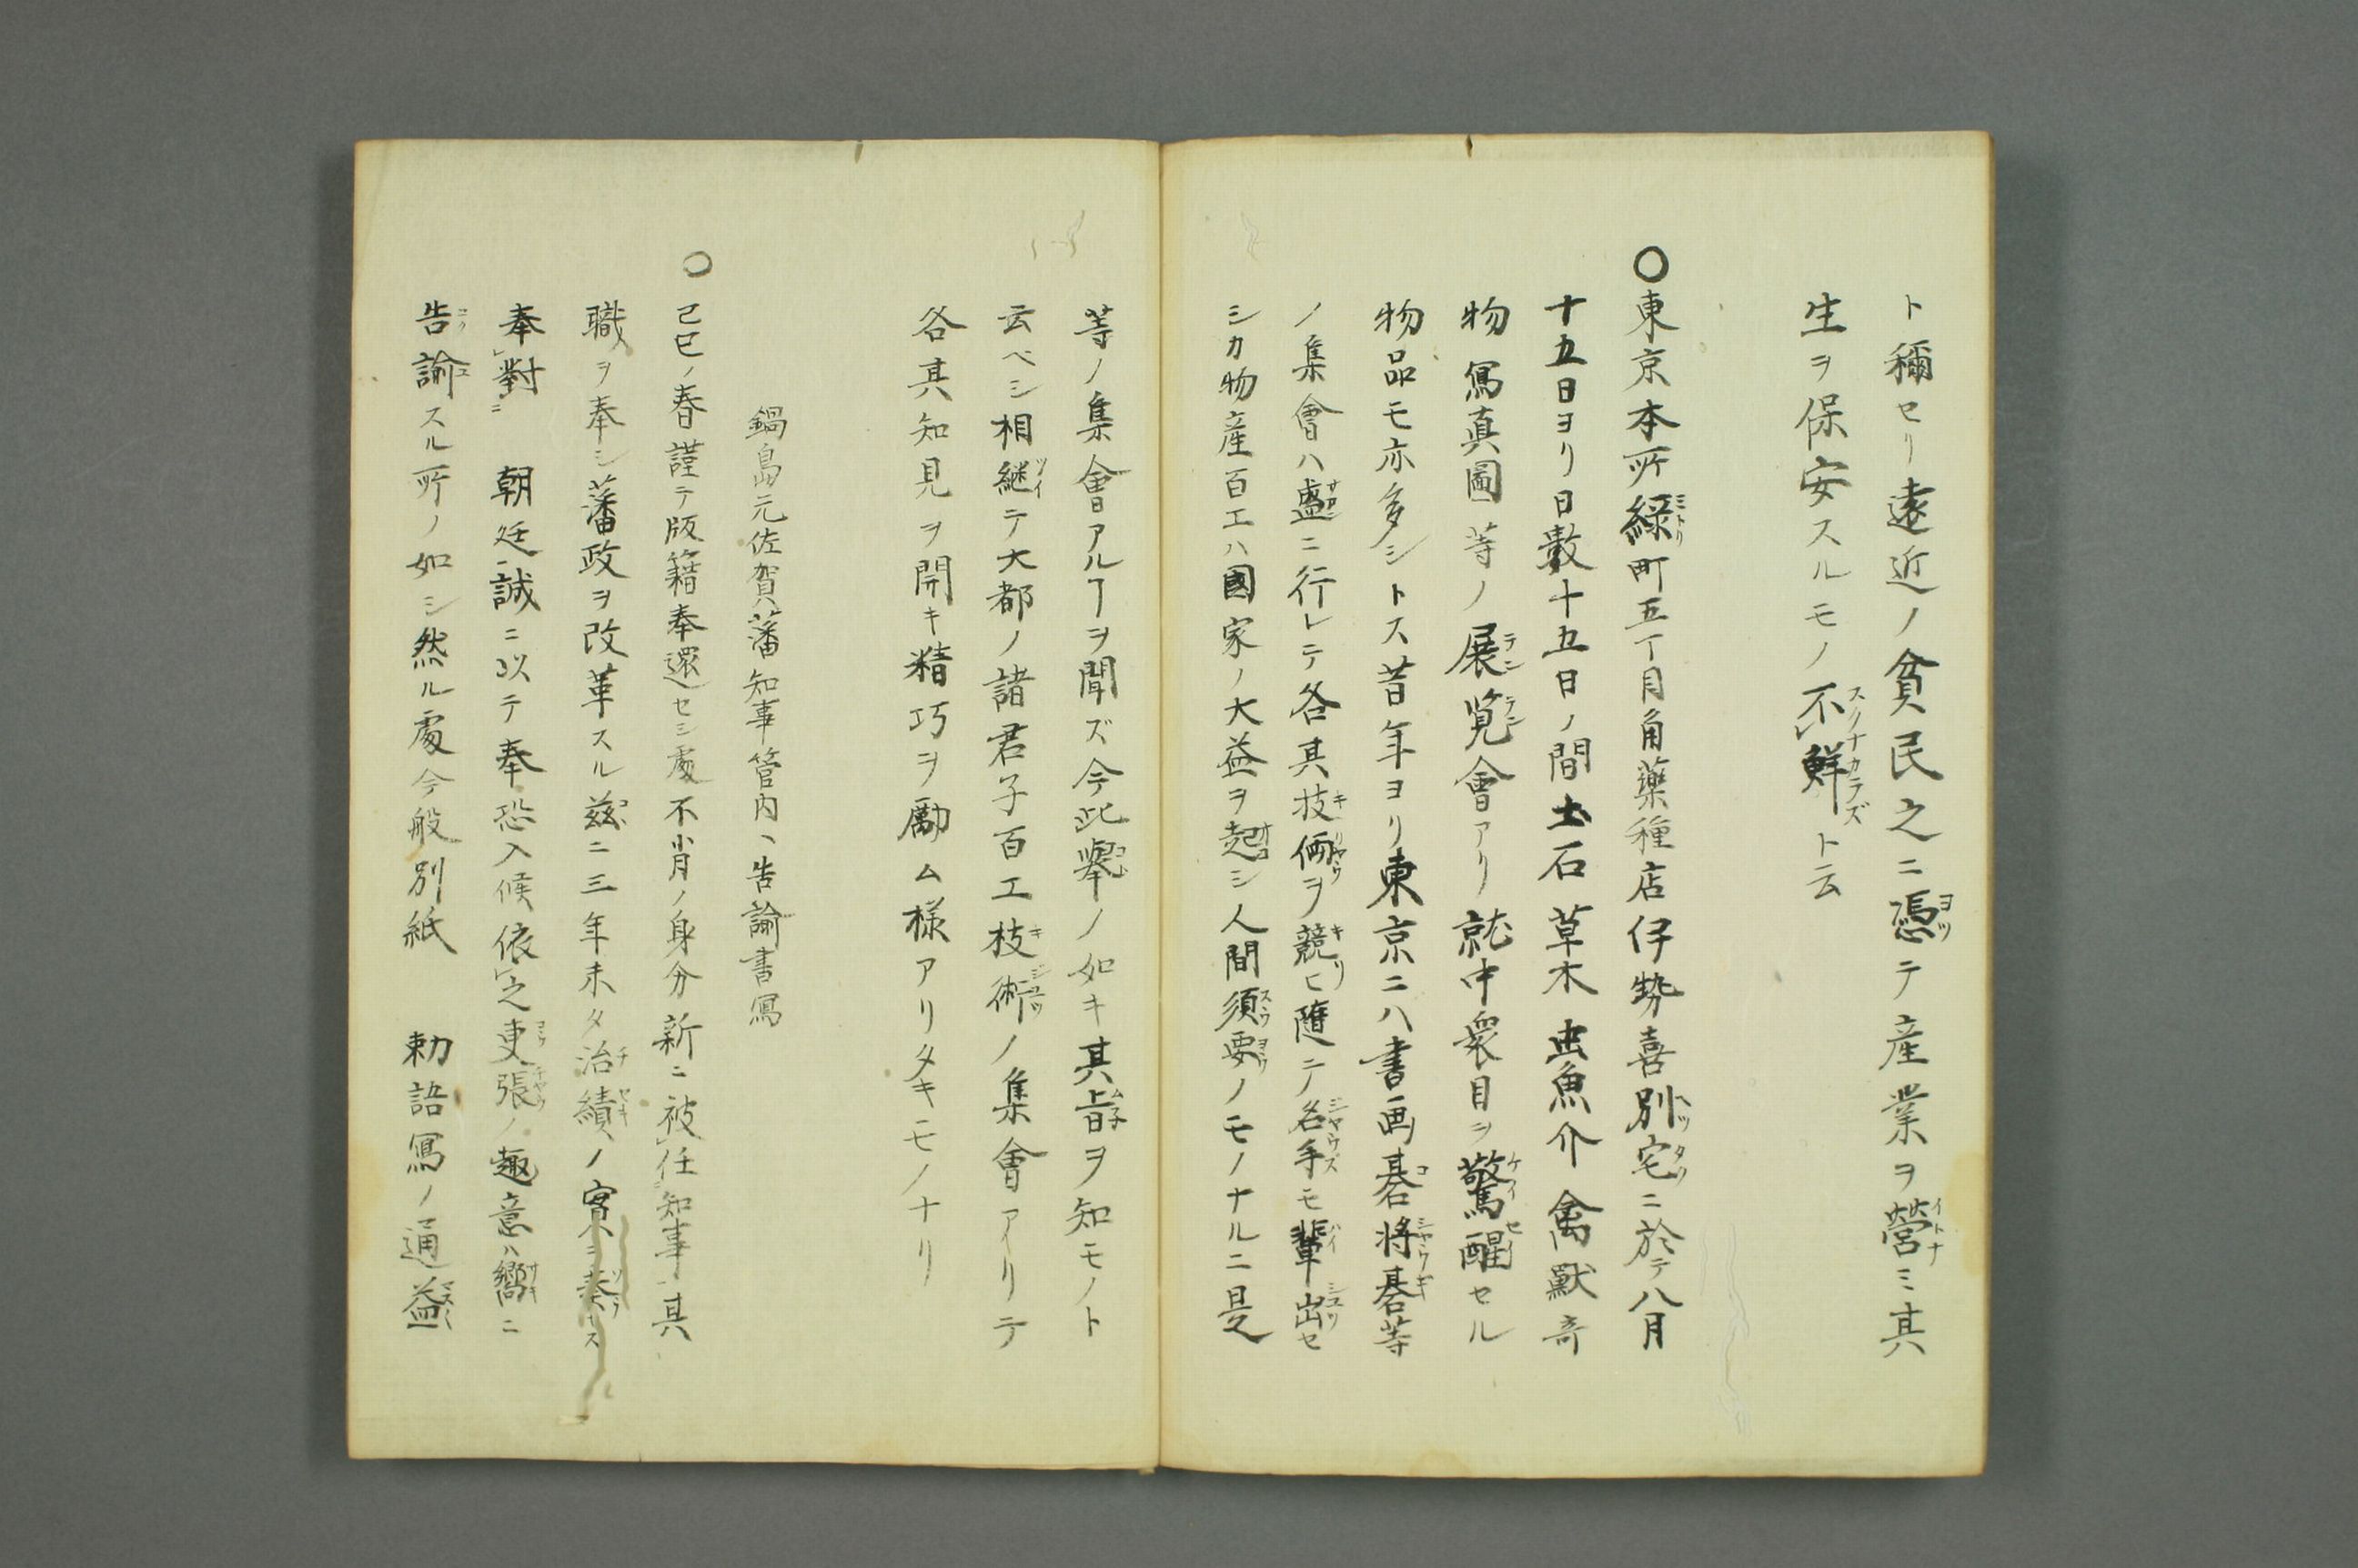 ト稱セリ遠近ノ貧民之ニ憑テ産業ヲ營ミ其
生ヲ保安スルモノ不鮮ト云
○東京本所緑町五丁目角藥種店伊勢喜別宅ニ於テ八月
十五日ヨリ日數十五日ノ間土石草木虫魚介禽獸奇
物寫真圖等ノ展覧會アリ就中衆目ヲ驚醒セル
物品モ亦多シトス昔年ヨリ東京ニハ書画碁将碁等
ノ集會ハ盛ニ行レテ各其技倆ヲ競ヒ隨テ名手モ輩出セ
シカ物産百工ハ國家ノ大益ヲ起シ人間須要ノモノナルニ是
等ノ集會アルヿヲ聞ズ今此擧ノ如キ其旨ヲ知モノト
云ベシ相継テ大都ノ諸君子百工技術ノ集會アリテ
各其知見ヲ開キ精巧ヲ勵ム様アリタキモノナリ
鍋島元佐賀藩知事管内ヘ告諭書寫
○己巳ノ春謹テ版籍奉還セシ處不肖ノ身分新ニ被任知事其
職ヲ奉シ藩政ヲ改革スル茲ニ三年未タ治績ノ實ヲ奏セス
奉對 朝廷誠ニ以テ奉恐入候依之更張ノ趣意ハ嚮ニ
告諭スル所ノ如シ然ル處今般別紙 勅語寫ノ通益